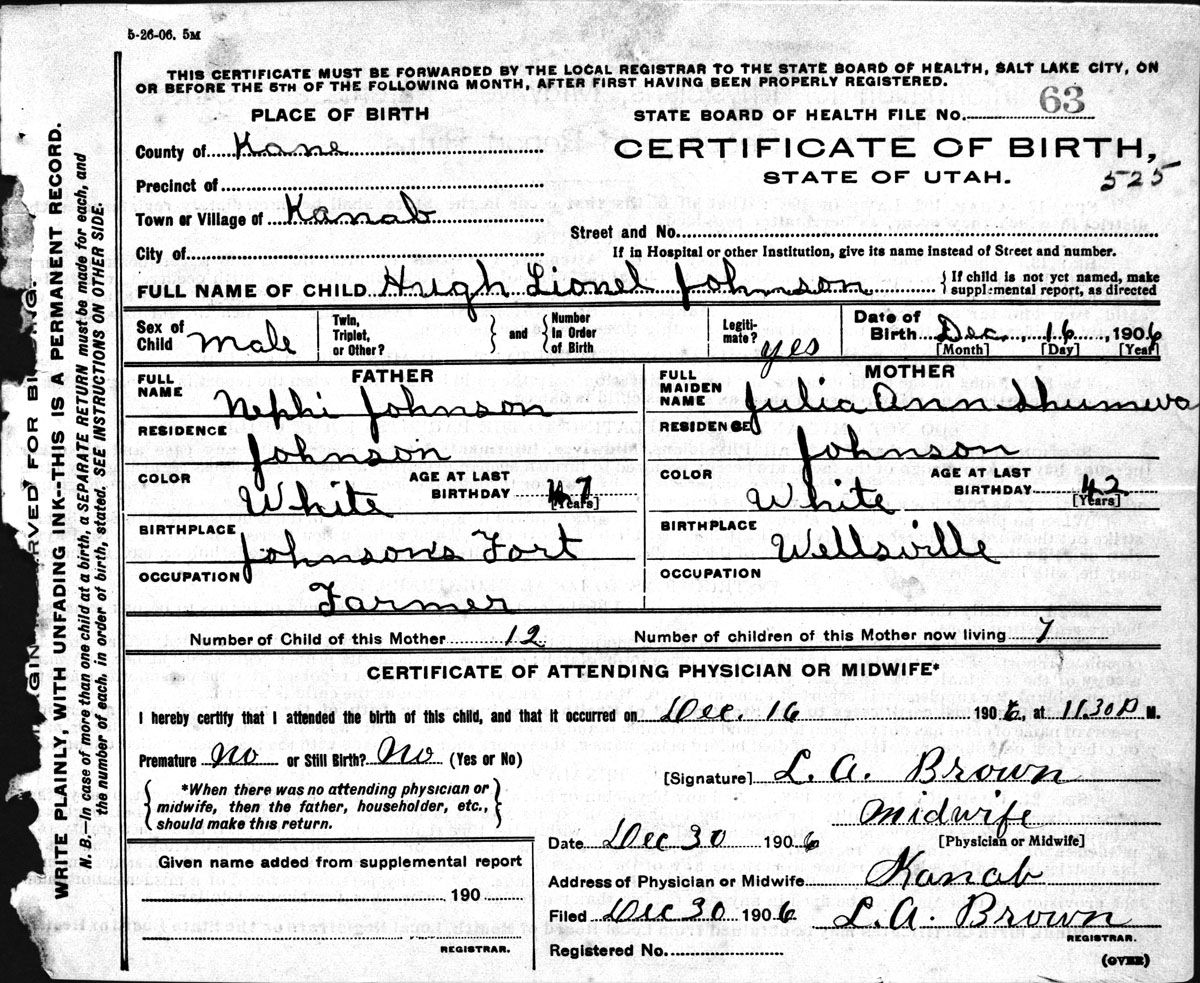 5-26-06. 5M
THIS CERTIFICATE MUST BE FORWARDED BY THE LOCAL REGISTRAR TO THE STATE BOARD OF HEALTH, SALT LAKE CITY, ON
OR BEFORE THE 5TH OF THE FOLLOWING MONTH, AFTER FIRST HAVING BEEN PROPERLY REGISTERED.
PLACE OF BIRTH
STATE BOARD OF HEALTH FILE NO. 63
County of Kane
CERTIFICATE OF BIRTH,
Precinct of
STATE OF UTAH. 525
Town or Village of Kanab
Street and No.
City of
If in Hospital or other Institution, give its name instead of Street and number.
FULL NAME OF CHILD Hugh Lionel Johnson { If child is not yet named, make
supplemental report, as directed
Sex of Child Male
Twin, Triplet, or Other? } and { Number In Order of Birth
Legiti-mate? yes
Date of Birth Dec. 16, 1906
[Month] [Day] [Year]
FATHER
FULL NAME Nephi Johnson
RESIDENCE Johnson
COLOR White AGE AT LAST BIRTHDAY 47 [Years]
BIRTHPLACE Johnsons Fort
OCCUPATION Farmer
MOTHER
FULL MAIDEN NAME Julia Ann Shumwa
RESIDENCE Johnson
COLOR White AGE AT LAST BIRTHDAY 42 [Years]
BIRTHPLACE Wellsville
OCCUPATION
Number of Child of this Mother 12 Number of children of this Mother now living 7
CERTIFICATE OF ATTENDING PHYSICIAN OR MIDWIFE*
I hereby certify that I attended the birth of this child, and that it occurred on Dec. 16 1906, at 11.30 P M.
Premature no or Still Birth? No (Yes or No)
[Signature] L. A. Brown
{ *When there was no attending physician or
midwife, then the father, householder, etc.,
should make this return. }
Midwife
[Physician or Midwife]
Date Dec 30 1906
Given name added from supplemental report
190
REGISTRAR.
Address of Physician or Midwife Kanab
Filed Dec 30 1906 L. A. Brown
REGISTRAR.
Registered No.
(OVER)
GIN RESERVED FOR BINDING.
WRITE PLAINLY, WITH UNFADING INK--THIS IS A PERMANENT RECORD.
N. B.—In case of more than one child at a birth, a SEPARATE RETURN must be made for each, and
the number of each, in order of birth, stated. SEE INSTRUCTIONS ON OTHER SIDE.